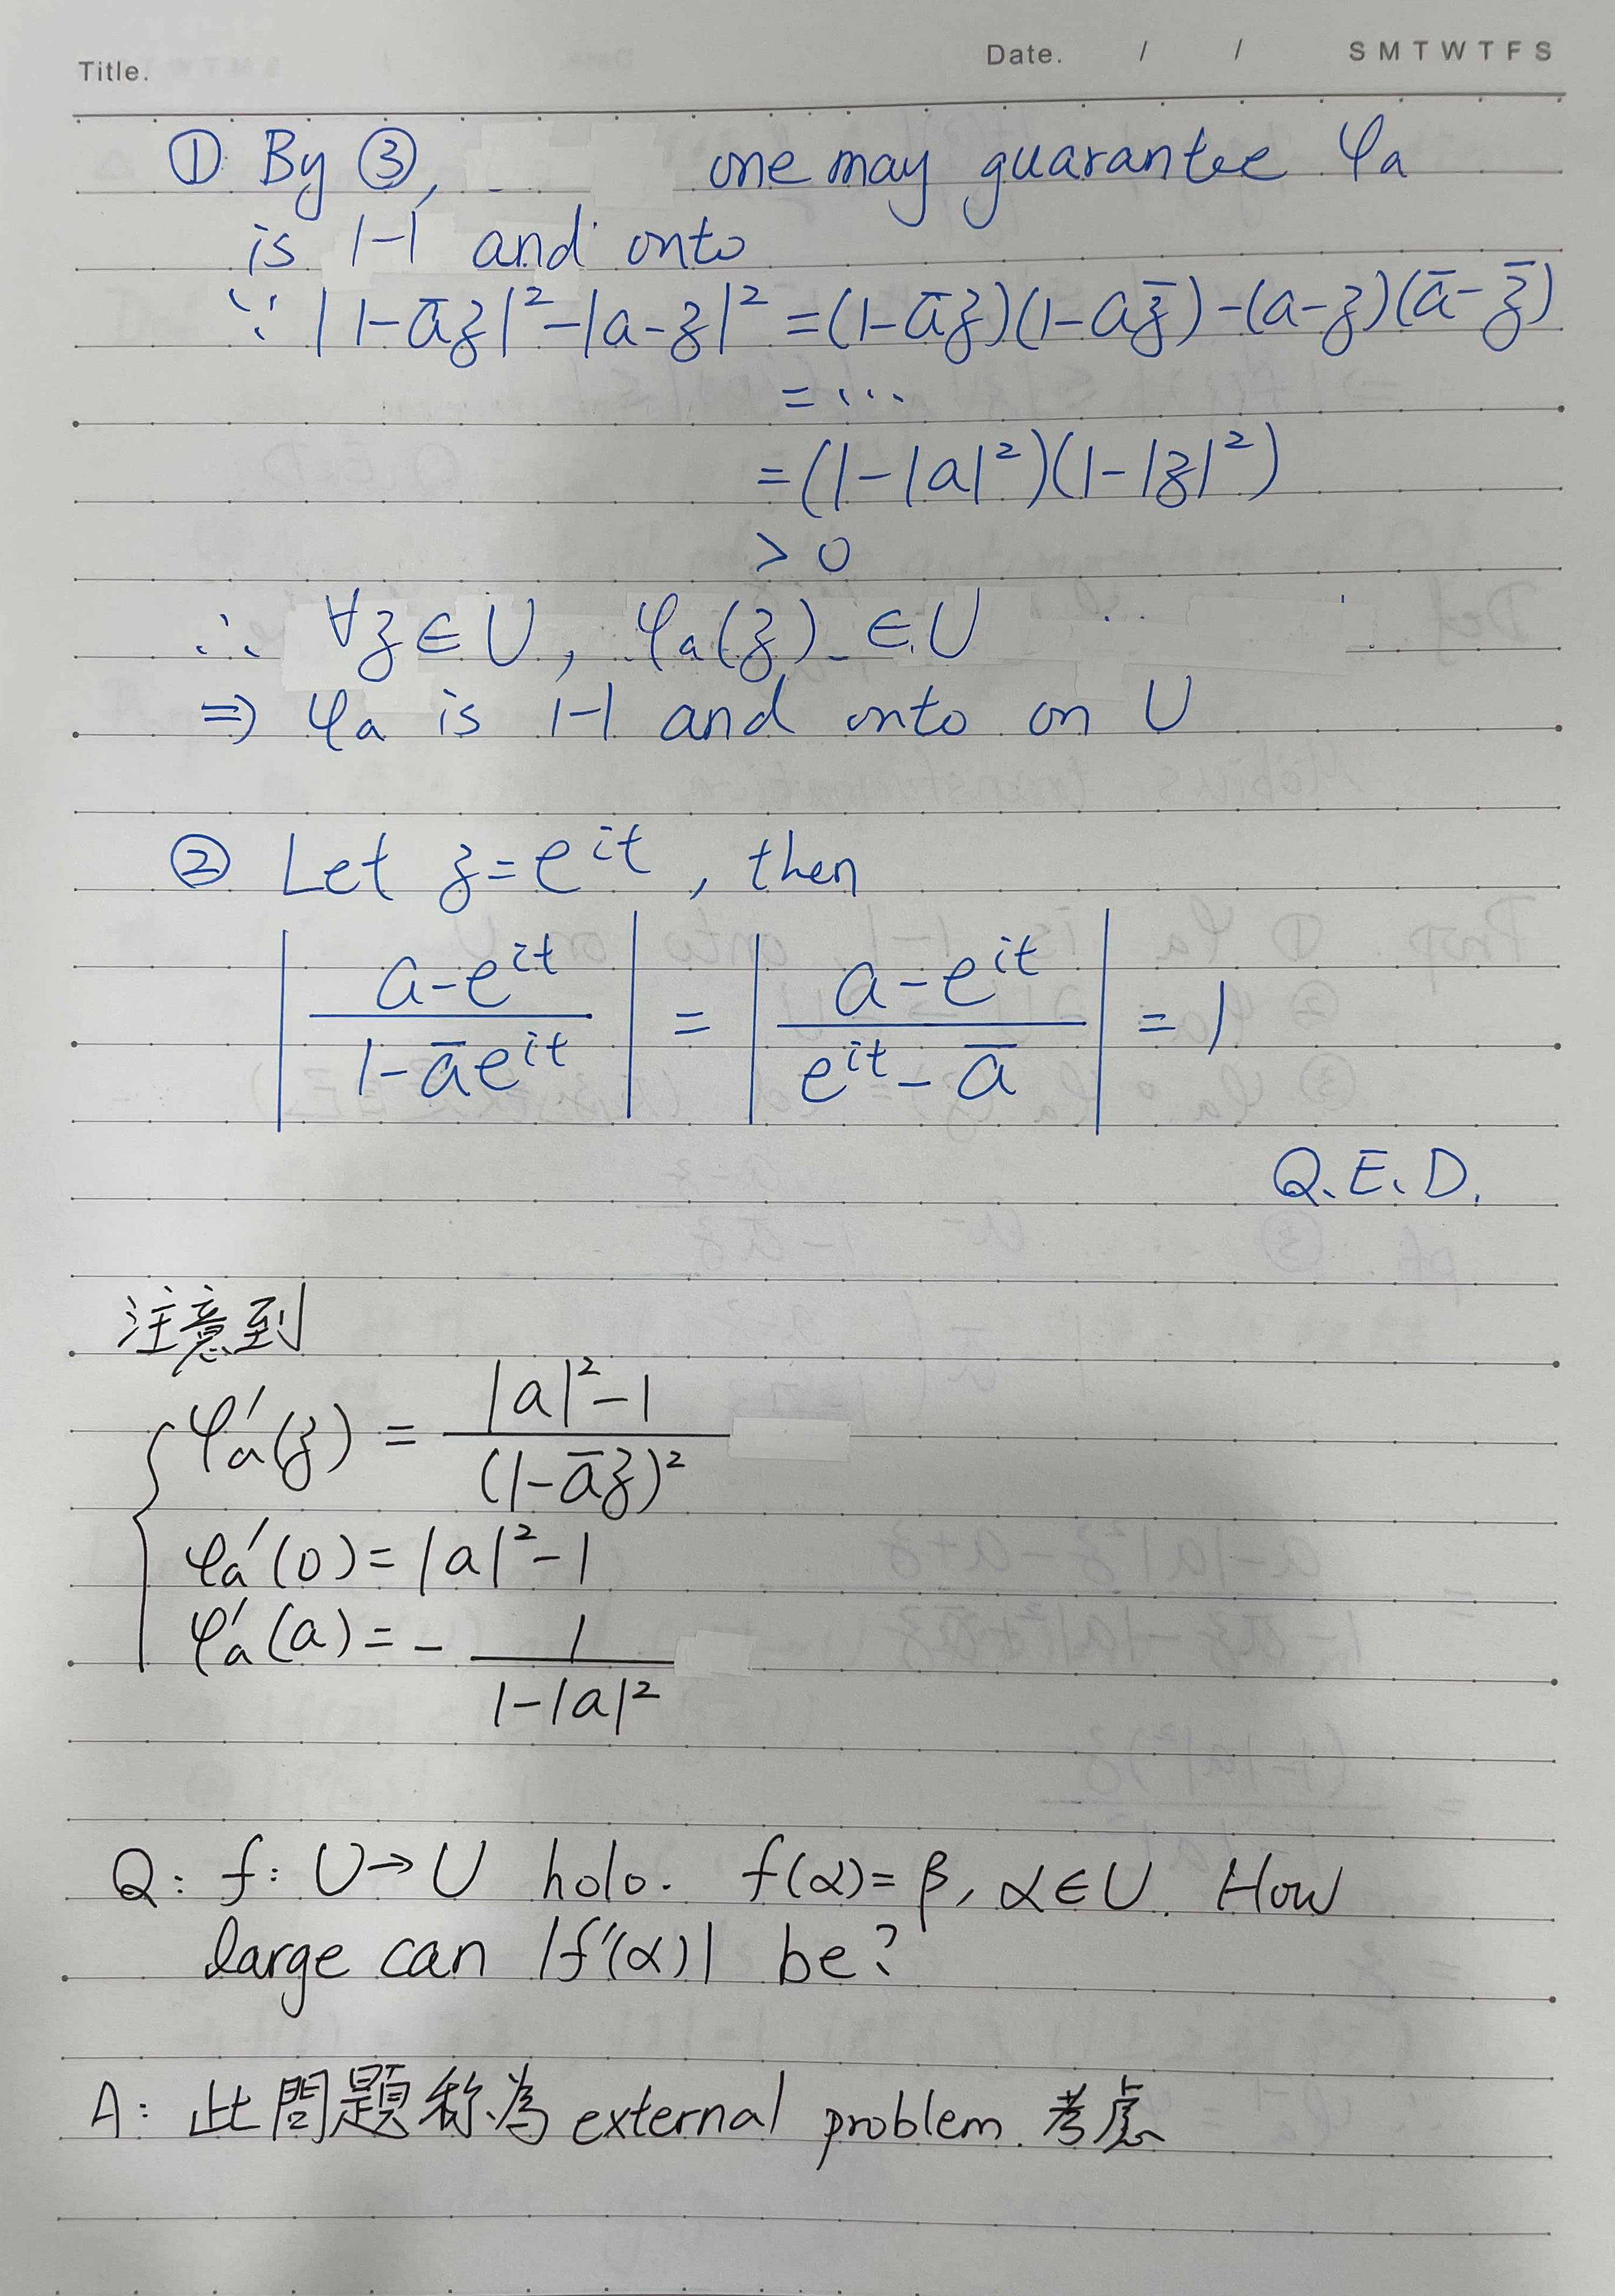 Title. Date. / / S M T W T F S
① By ③, one may guarantee φa
is 1-1 and onto
∵ |1-āz|²-|a-z|² =(1-āz)(1-az̄)-(a-z)(ā-z̄)
=...
=(1-|a|²)(1-|z|²)
> 0
∴ ∀z∈U, φa(z) ∈U
⇒ φa is 1-1 and onto on U
② Let z=e^{it}, then
|(a-e^{it})/(1-āe^{it})| = |(a-e^{it})/(e^{it}-ā)| = 1
Q.E.D.
注意到
φa'(z) = (|a|²-1)/(1-āz)²
φa'(0)=|a|²-1
φa'(a)=- 1/(1-|a|²)
Q: f: U→U holo. f(α)=β, α∈U. How
large can |f'(α)| be?
A: 此問題称為 external problem. 考慮